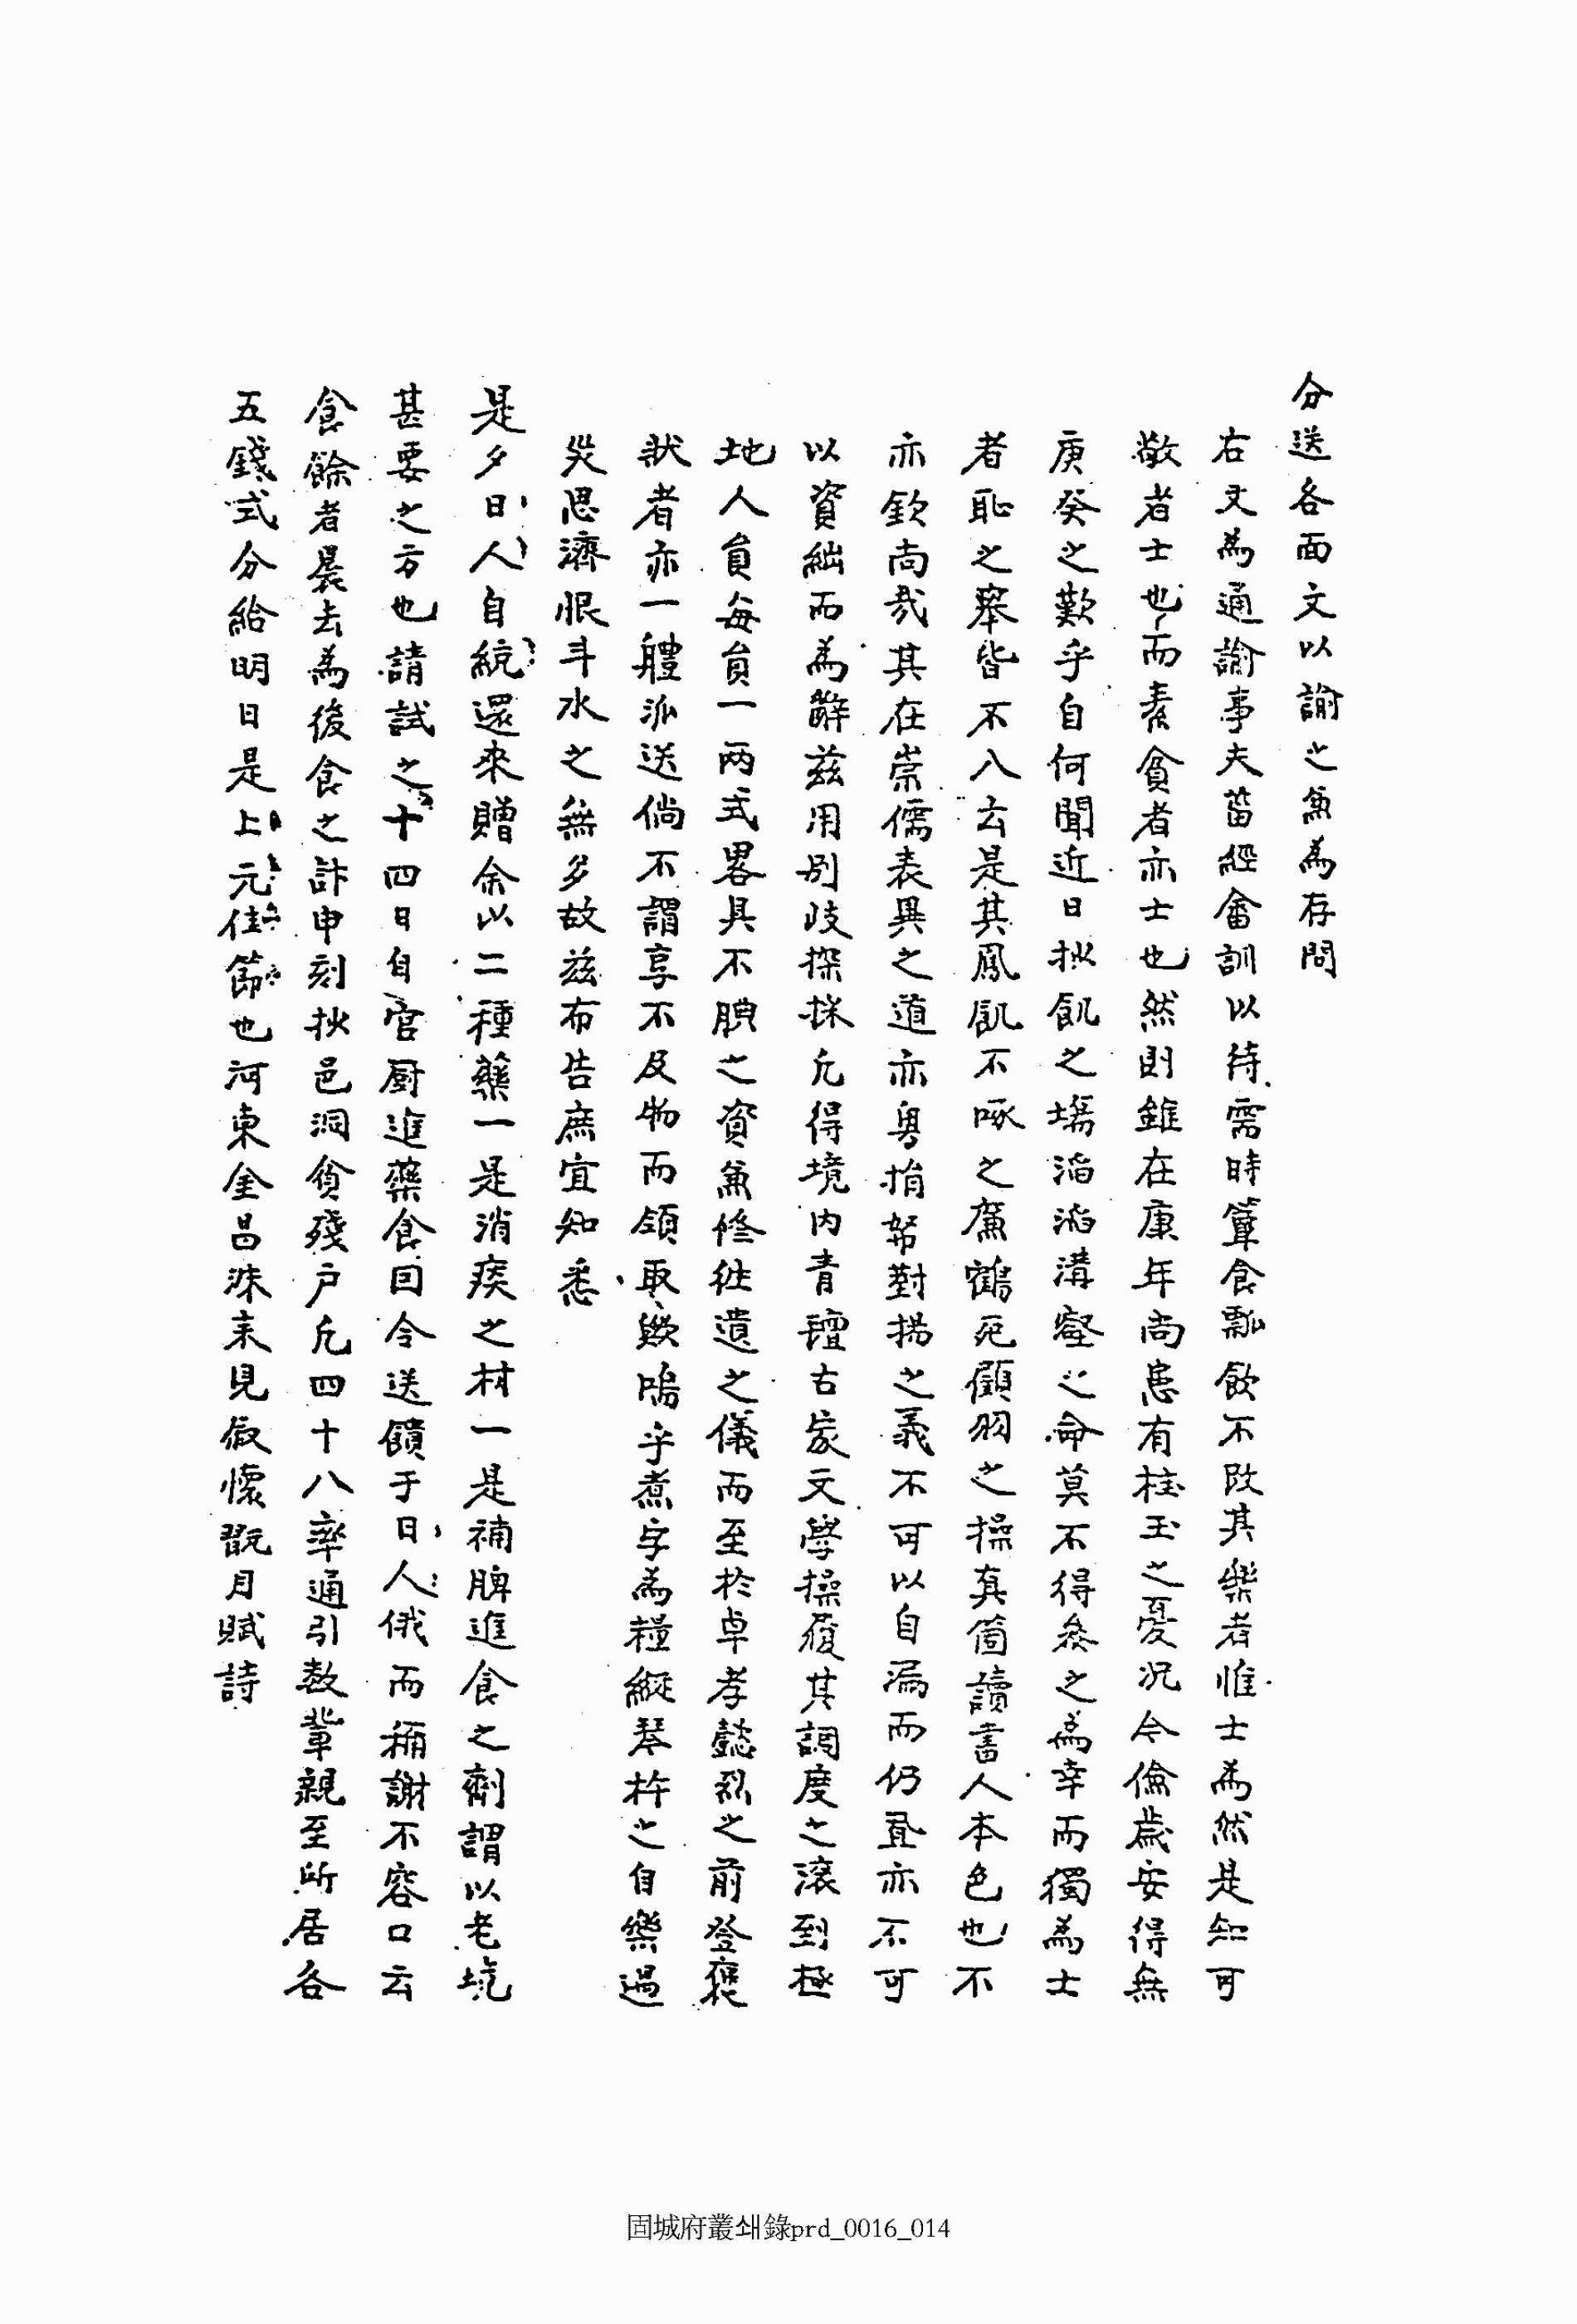 分送各面文以諭之兼爲存問
右文爲通諭事夫菑經畬訓以待需時簞食瓢飮不改其樂者惟士爲然是知可
敬者士也而素貧者亦士也然則雖在康年尙患有桂玉之憂况今儉歲安得無
庚癸之歎乎自何聞近日捄飢之塲滔滔溝壑之命莫不得叅之爲幸而獨爲士
者恥之擧皆不入云是其鳳飢不啄之廉鶴死顧羽之操眞箇讀書人本色也不
亦欽尙哉其在崇儒表異之道亦粤捐帑對揚之義不可以自漏而仍置亦不可
以資絀而爲辭玆用別歧探採凡得境內靑氊古家文學操履其調度之滚到極
地人員每員一兩式畧具不腆之資兼修往遺之儀而至於卓孝懿烈之前登褒
狀者亦一軆派送倘不謂享不及物而領取歟嗚乎煮字爲糧縱琴杵之自樂過
災思濟恨斗水之無多故玆布告庶宜知悉
是夕日人自統還來贈余以二種藥一是消痰之材一是補脾進食之劑謂以老坑
甚要之方也請試之十四日自官厨進藥食回令送饋于日人俄而稱謝不容口云
食餘者晨去爲後食之計申刻捄邑洞貧殘户凡四十八率通引数輩親至所居各
五錢式分給明日是上元佳節也河東金昌洙来見叙懷翫月賦詩
固城府叢쇄錄prd_0016_014